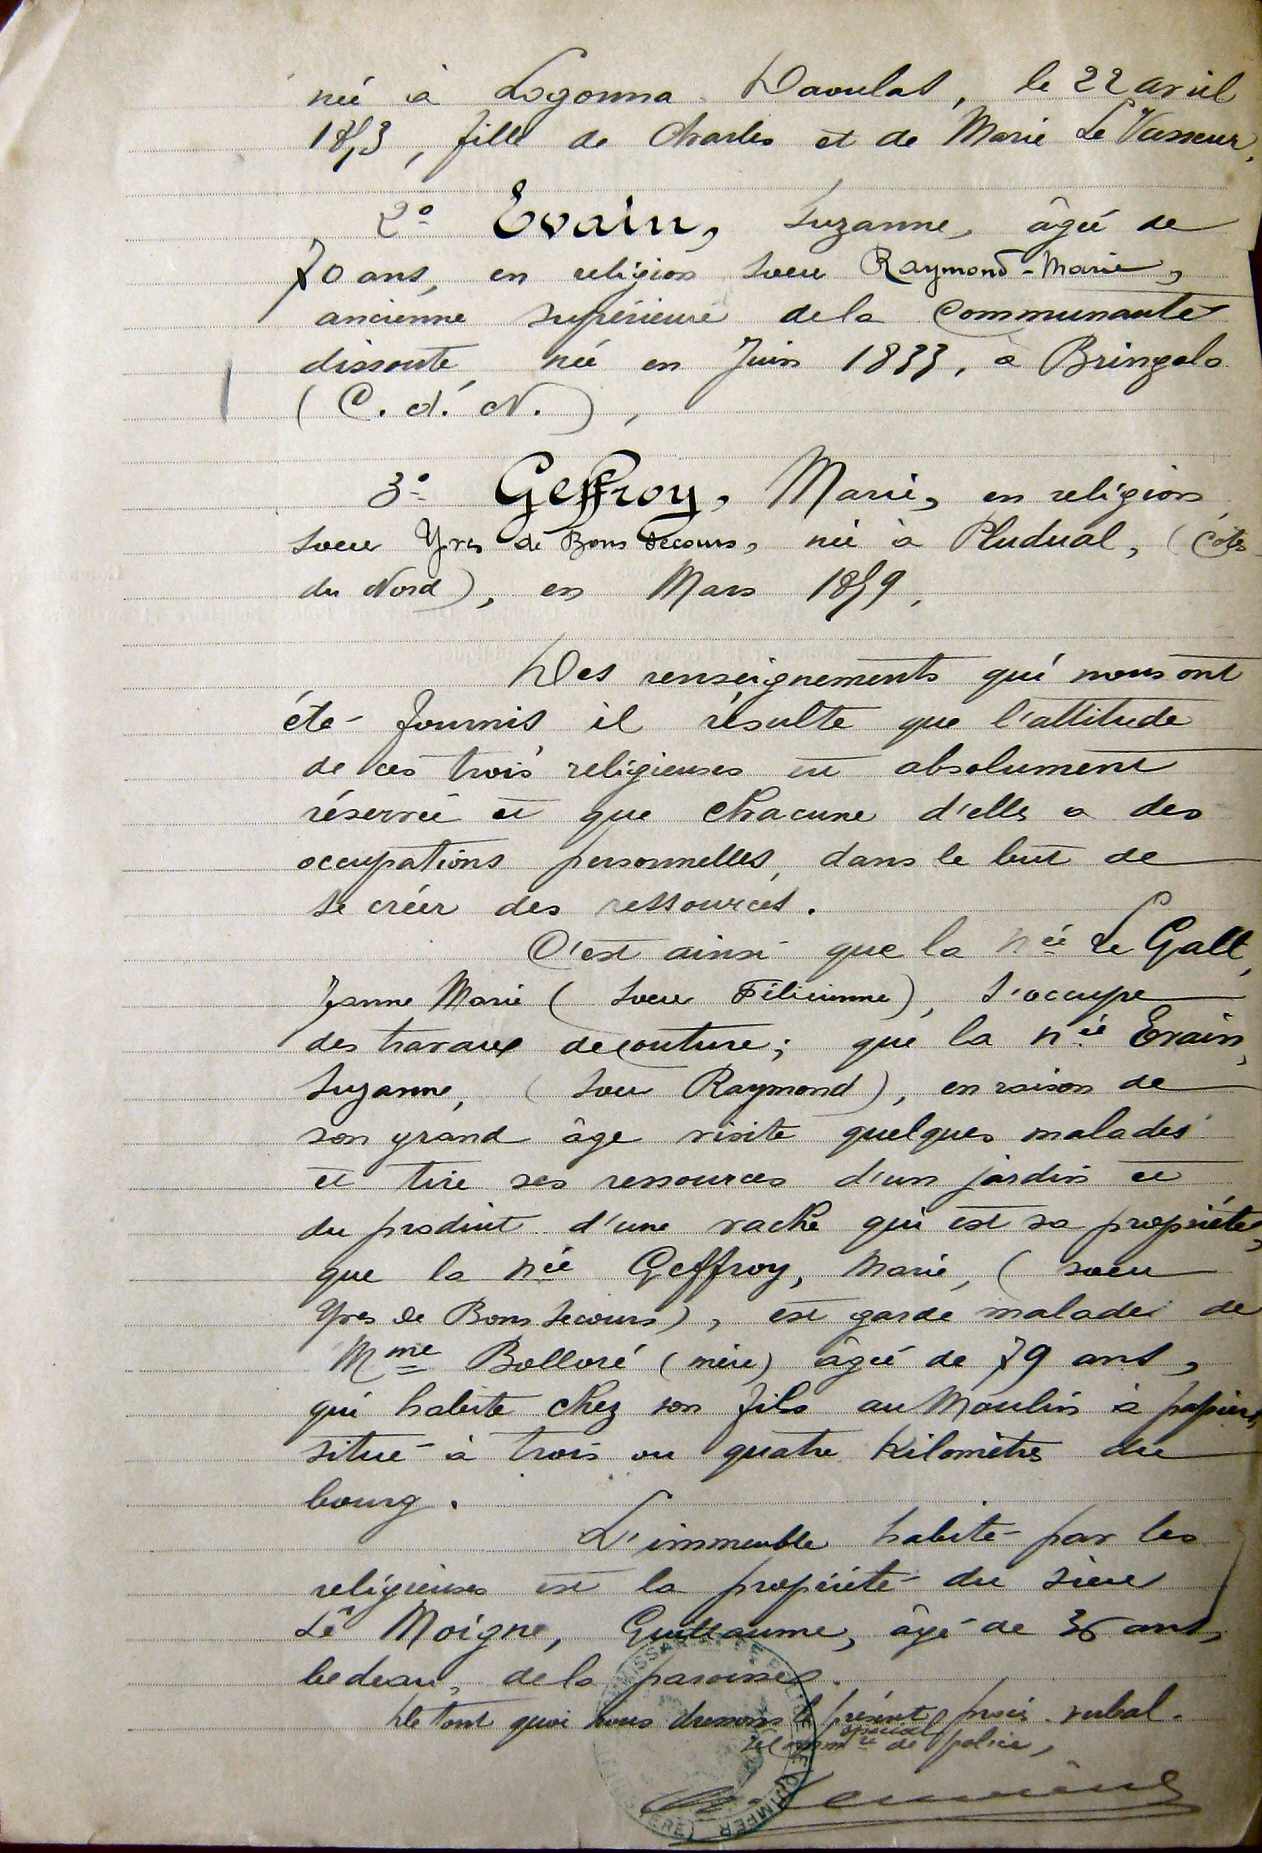 née à Logonna Daoulas, le 22 avril
1853, fille de Charles et de Marie Le Vasseur,
2º Evain, Suzanne, âgée de
70 ans, en religion soeur Raymond-Marie,
ancienne supérieure de la Communauté
dissoute, née en Juin 1833, à Bringolo
(C. d. N.),
3º Geffroy, Marie, en religion,
soeur Yves de Bon Secours, née à Pludual, (Côtes
du Nord), en Mars 1859.
Des renseignements qui nous ont
été fournis il résulte que l'attitude
de ces trois religieuses est absolument
réservée et que chacune d'elles a des
occupations personnelles, dans le but de
se créer des ressources.
C'est ainsi que la née Le Gall,
Jeanne Marie (soeur Félicienne), s'occupe
des travaux de couture; que la née Evain,
Suzanne, (soeur Raymond), en raison de
son grand âge visite quelques malades
et tire ses ressources d'un jardin et
du produit d'une vache qui est sa propriété,
que la née Geffroy, Marie, (soeur
Yves de Bon Secours), est garde malade de
Mme Bolloré (mère) âgée de 79 ans,
qui habite chez son fils au Moulin à papiers,
situé à trois ou quatre kilomètres du
bourg.
L'immeuble habité par les
religieuses est la propriété du sieur
Le Moigne, Guillaume, âgé de 36 ans,
bedeau, de la paroisse.
De tout quoi nous dressons le présent procès-verbal.
Le Commre spécial de police,